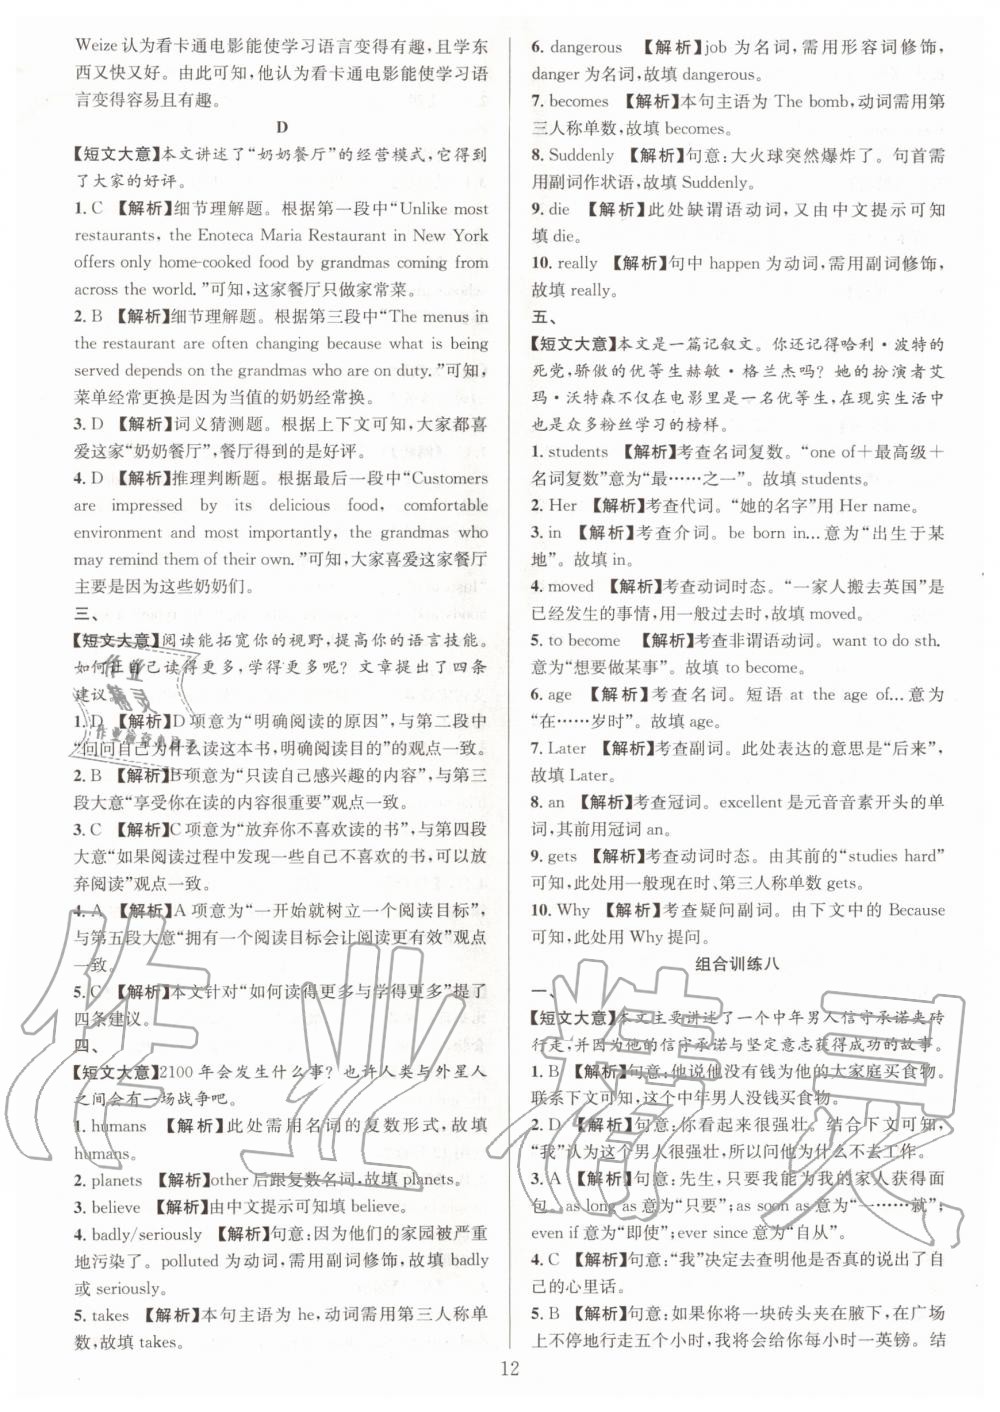 Weize认为看卡通电影能使学习语言变得有趣,且学东
西又快又好。由此可知,他认为看卡通电影能使学习语
言变得容易且有趣。
D
【短文大意】本文讲述了“奶奶餐厅”的经营模式,它得到
了大家的好评。
1. C 【解析】细节理解题。根据第一段中“Unlike most
restaurants, the Enoteca Maria Restaurant in New York
offers only home-cooked food by grandmas coming from
across the world.”可知,这家餐厅只做家常菜。
2. B 【解析】细节理解题。根据第三段中“The menus in
the restaurant are often changing because what is being
served depends on the grandmas who are on duty.”可知,
菜单经常更换是因为当值的奶奶经常换。
3. D 【解析】词义猜测题。根据上下文可知,大家都喜
爱这家“奶奶餐厅”,餐厅得到的是好评。
4. D 【解析】推理判断题。根据最后一段中“Customers
are impressed by its delicious food, comfortable
environment and most importantly, the grandmas who
may remind them of their own.”可知,大家喜爱这家餐厅
主要是因为这些奶奶们。
三、
【短文大意】阅读能拓宽你的视野,提高你的语言技能。
如何让自己读得更多,学得更多呢?文章提出了四条
建议。
1. D 【解析】D项意为“明确阅读的原因”,与第二段中
“问问自己为什么读这本书,明确阅读目的”的观点一致。
2. B 【解析】B项意为“只读自己感兴趣的内容”,与第三
段大意“享受你在读的内容很重要”观点一致。
3. C 【解析】C项意为“放弃你不喜欢读的书”,与第四段
大意“如果阅读过程中发现一些自己不喜欢的书,可以放
弃阅读”观点一致。
4. A 【解析】A项意为“一开始就树立一个阅读目标”,
与第五段大意“拥有一个阅读目标会让阅读更有效”观点
一致。
5. C 【解析】本文针对“如何读得更多与学得更多”提了
四条建议。
四、
【短文大意】2100年会发生什么事?也许人类与外星人
之间会有一场战争吧。
1. humans 【解析】此处需用名词的复数形式,故填
humans。
2. planets 【解析】other后跟复数名词,故填planets。
3. believe 【解析】由中文提示可知填believe。
4. badly/seriously 【解析】句意:因为他们的家园被严重
地污染了。polluted为动词,需用副词修饰,故填badly
或seriously。
5. takes 【解析】本句主语为he,动词需用第三人称单
数,故填takes。
6. dangerous 【解析】job为名词,需用形容词修饰,
danger为名词,故填dangerous。
7. becomes 【解析】本句主语为The bomb,动词需用第
三人称单数,故填becomes。
8. Suddenly 【解析】句意:大火球突然爆炸了。句首需
用副词作状语,故填Suddenly。
9. die 【解析】此处缺谓语动词,又由中文提示可知
填die。
10. really 【解析】句中happen为动词,需用副词修饰,
故填really。
五、
【短文大意】本文是一篇记叙文。你还记得哈利·波特的
死党,骄傲的优等生赫敏·格兰杰吗?她的扮演者艾
玛·沃特森不仅在电影里是一名优等生,在现实生活中
也是众多粉丝学习的榜样。
1. students 【解析】考查名词复数。“one of+最高级+
名词复数”意为“最……之一”。故填students。
2. Her 【解析】考查代词。“她的名字”用Her name。
3. in 【解析】考查介词。be born in…意为“出生于某
地”。故填in。
4. moved 【解析】考查动词时态。“一家人搬去英国”是
已经发生的事情,用一般过去时,故填moved。
5. to become 【解析】考查非谓语动词。want to do sth.
意为“想要做某事”。故填to become。
6. age 【解析】考查名词。短语at the age of…意为
“在……岁时”。故填age。
7. Later 【解析】考查副词。此处表达的意思是“后来”,
故填Later。
8. an 【解析】考查冠词。excellent是元音音素开头的单
词,其前用冠词an。
9. gets 【解析】考查动词时态。由其前的“studies hard”
可知,此处用一般现在时、第三人称单数gets。
10. Why 【解析】考查疑问副词。由下文中的Because
可知,此处用Why提问。
组合训练八
一、
【短文大意】本文主要讲述了一个中年男人信守承诺夹砖
行走,并因为他的信守承诺与坚定意志获得成功的故事。
1. B 【解析】句意:他说他没有钱为他的大家庭买食物。
联系下文可知,这个中年男人没钱买食物。
2. D 【解析】句意:你看起来很强壮。结合下文可知,
“我”认为这个男人很强壮,所以问他为什么不去工作。
3. A 【解析】句意:先生,只要我能为我的家人获得面
包。as long as意为“只要”;as soon as意为“一……就”;
even if意为“即使”;ever since意为“自从”。
4. C 【解析】句意:“我”决定去查明他是否真的说出了自
己的心里话。
5. B 【解析】句意:如果你将一块砖头夹在腋下,在广场
上不停地行走五个小时,我将会给你每小时一英镑。结
12
作业精灵
作业精灵